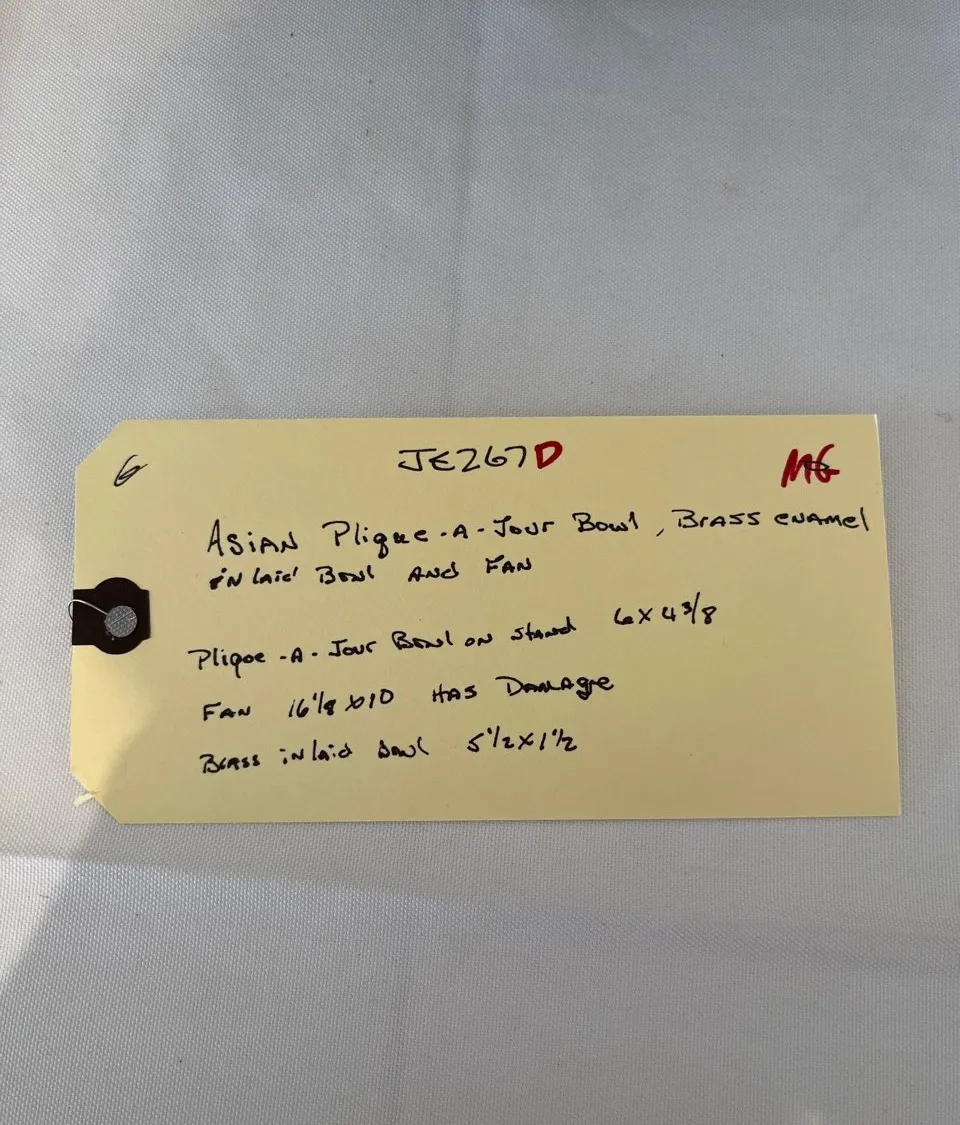 6 JE267D MG
Asian Plique-A-Jour Bowl, Brass enamel
inlaid Bowl and Fan
Pliqoe-A-Jour Bowl on stand 6x4 3/8
Fan 16 1/8 x10 Has Damage
Brass inlaid bowl 5 1/2x1 1/2